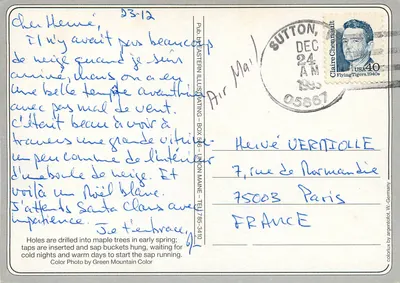 23-12
Cher Hervé,
Il n'y avait pas beaucoup
de neige quand je suis
arrivé, mais on a eu
une belle tempête avanthier
avec pas mal de vent.
C'était beau à voir à
travers une grande vitrine
un peu comme de l'intérieur
d'une boule de neige. Et
voilà un Noël blanc.
J'attends Santa Claus avec
impatience.
Je t'embrasse,
Holes are drilled into maple trees in early spring;
taps are inserted and sap buckets hung, waiting for
cold nights and warm days to start the sap running.
Color Photo by Green Mountain Color
Pub. by EASTERN ILLUSTRATING - BOX UNION MAINE - TEL. 785-3410
Air Mail
SUTTON,
DEC
24
AM
05867
Claire Chennault
USA 40
Flying Tigers 1940s
Hervé VERMIOLLE
7, rue de Normandie
75003 Paris
FRANCE